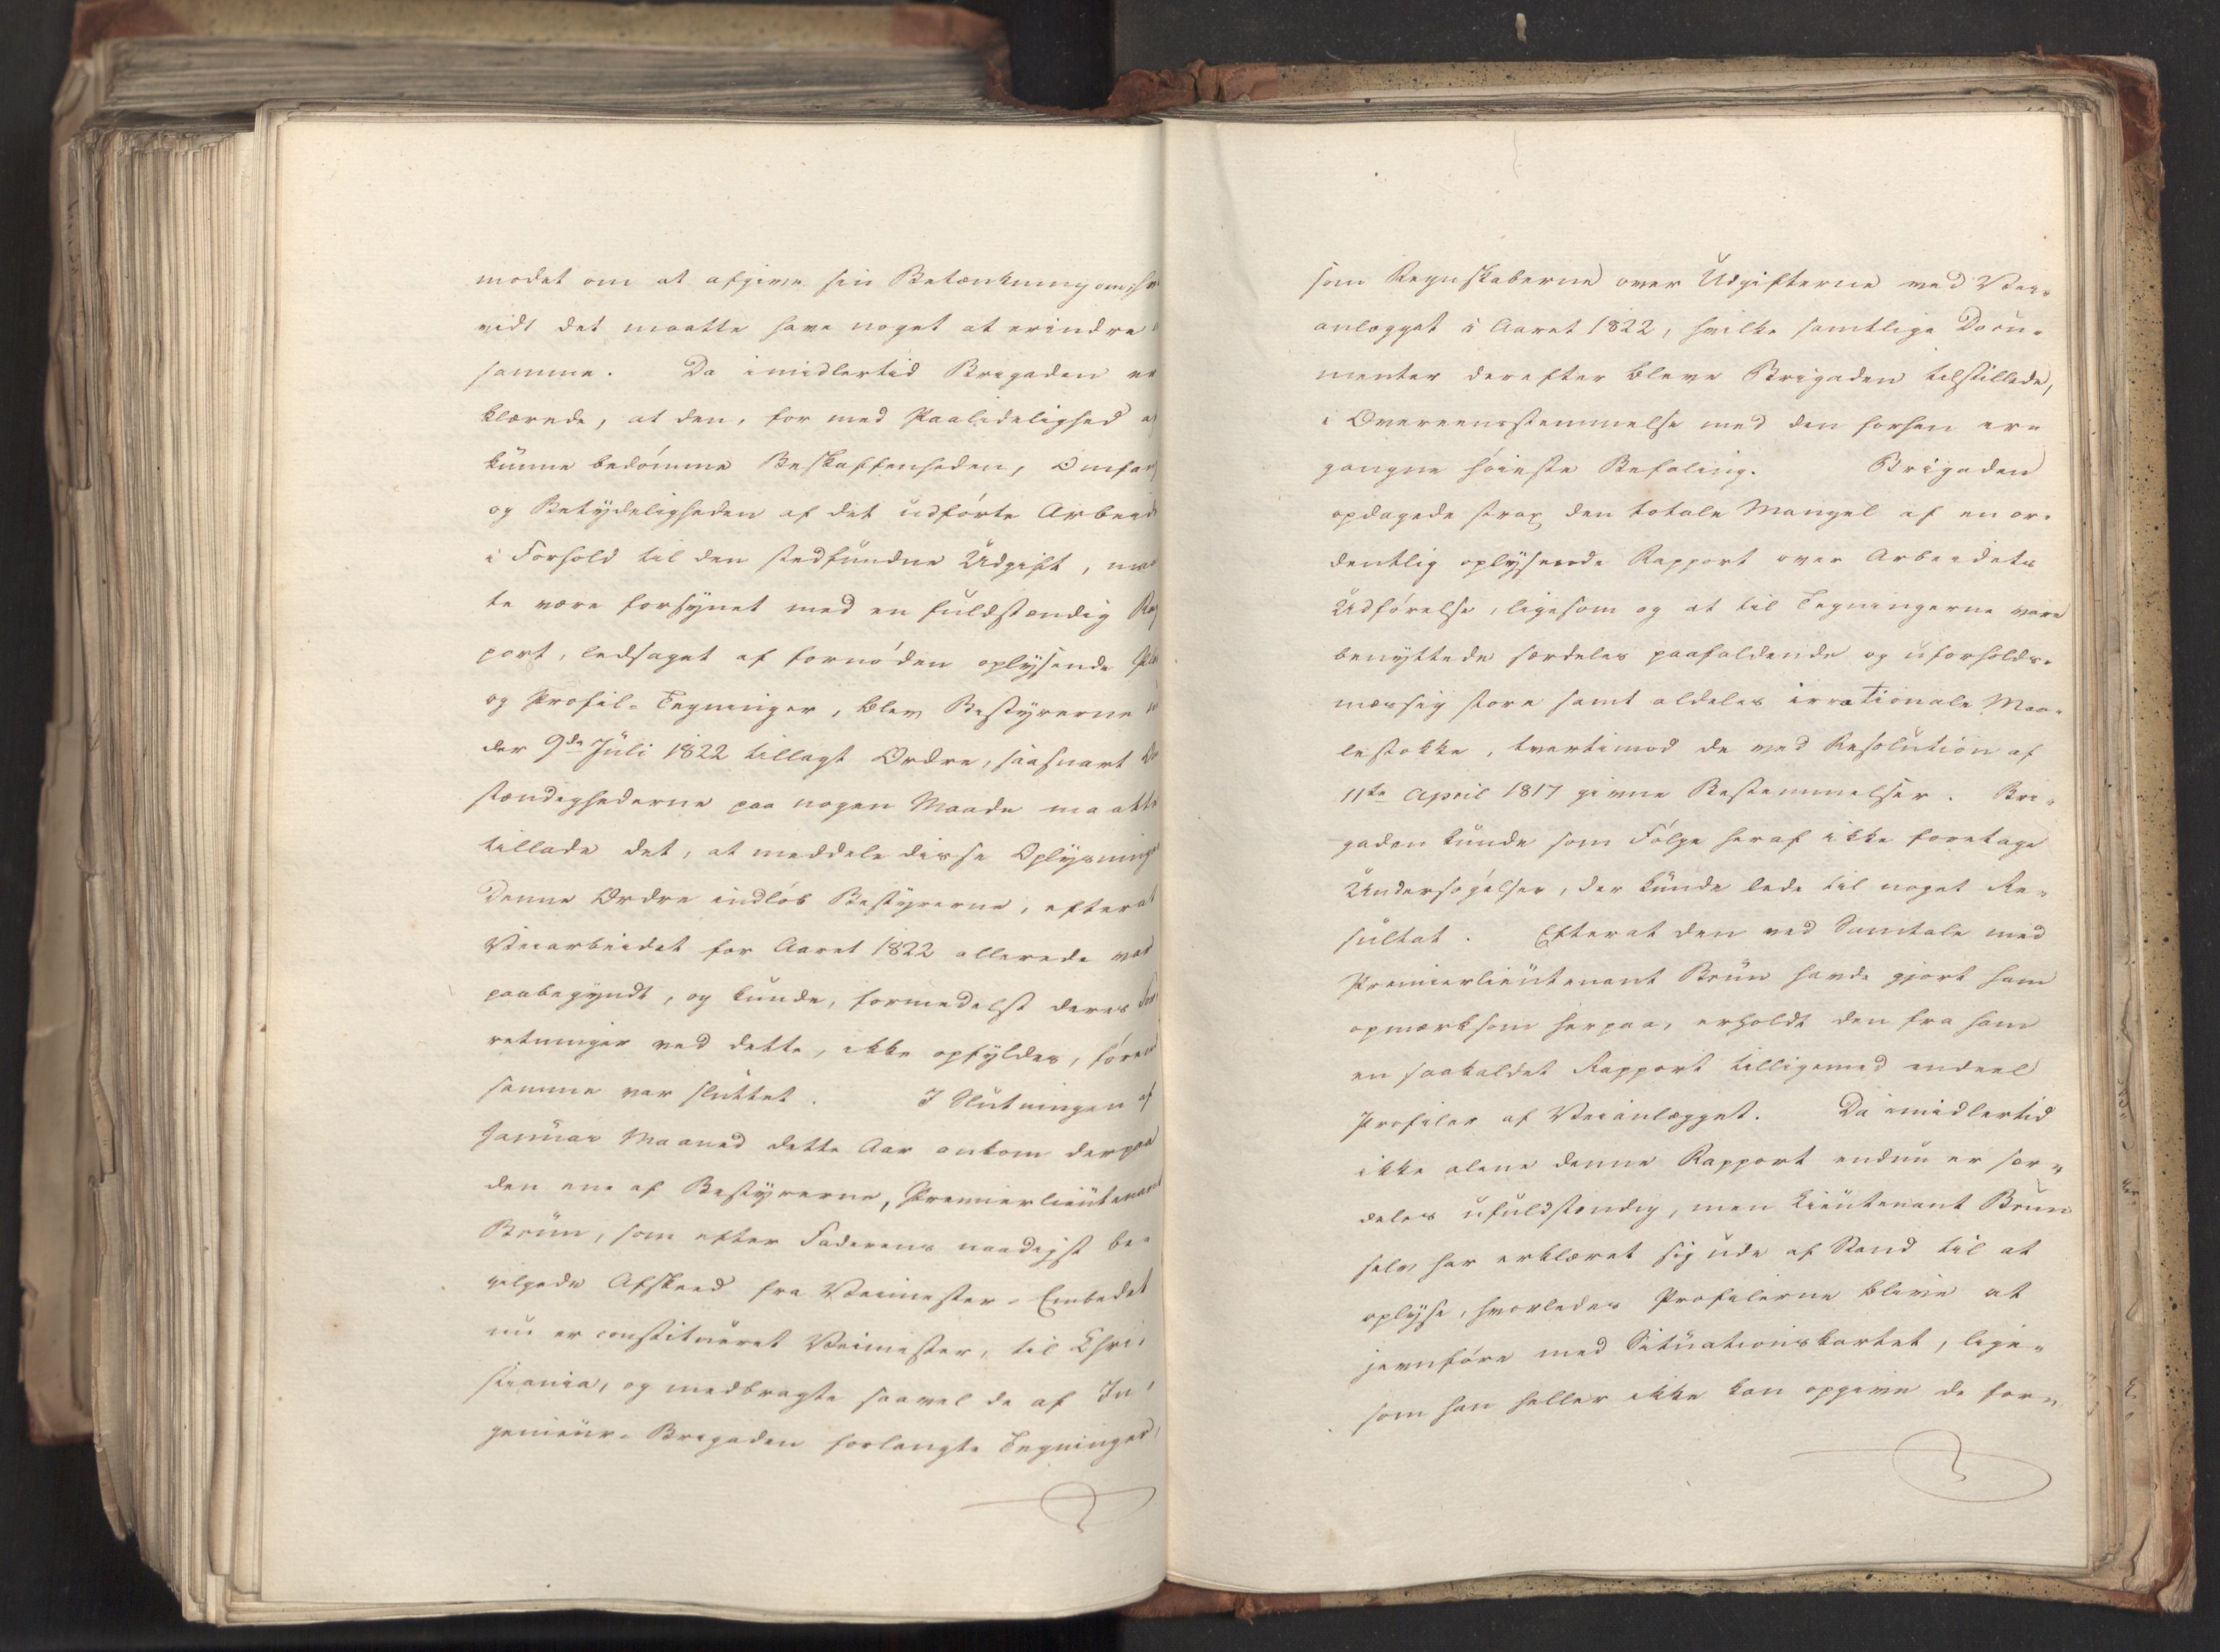 modet om at afgive sin Betænkning om, hvor
vidt det maatte have noget at erindre
samme. Da imidlertid Brigaden er
klærede, at den, for med Paalidelighed at
kunne bedømme Beskaffenheden, Omfang
og Betydeligheden af det udførte Arbeide
i Forhold til den stedfundne Udgift, maat
te være forsynet med en fuldstændig Rap
port, ledsaget af fornøden oplysende Plan
og Profil-Tegninger, blev Bestyrerne un
der 9de Juli 1822 tillagt Ordre, saasnart Om
stændighederne paa nogen Maade maatte
tillade det, at meddele disse Oplysninger
Denne Ordre indløb Bestyrerne, efterat
Veiarbeidet for Aaret 1822 allerede var
paabegyndt, og kunde, formedelst deres For
retninger ved dette, ikke opfyldes, førend
samme var sluttet. I Slutningen af
Januar Maaned dette Aar ankom derpaa
den ene af Bestyrerne, Premierlieutenant
Brun, som efter Faderens naadigst be-
vilgede Afskeed fra Veimester-Embedet
nu er constitueret Veimester, til Chri-
stiania, og medbragte saavel de af In-
genieur-Brigaden forlangte Tegninger,
som Regnskaberne over Udgifterne ved Vei-
anlægget i Aaret 1822, hvilke samtlige Docu-
menter derefter bleve Brigaden tilstillede,
i Overeensstemmelse med den forhen er-
gangne høieste Befaling. Brigaden
opdagede strax den totale Mangel af en or-
dentlig oplysende Rapport over Arbeidets
Udførelse, ligesom og at til Tegningerne vare
benyttede særdeles paafaldende og uforholds-
mæssig store samt aldeles irrationale Maa-
lestokke, tvertimod de ved Resolution af
11te April 1817 givne Bestemmelser. Bri-
gaden kunde som Følge heraf ikke foretage
Undersøgelser, der kunde lede til noget Re-
sultat. Efterat den ved Samtale med
Premierlieutenant Brun havde gjort ham
opmærksom herpaa, erholdt den fra ham
en saakaldet Rapport tilligemed endeel
Profiler af Veianlægget. Da imidlertid
ikke alene denne Rapport endnu er sær-
deles ufuldstændig, men Lieutenant Brun
selv har erklæret sig ude af Stand til at
oplyse, hvorledes Profilerne blive at
jevnføre med Situationskartet, lige-
som han heller ikke kan opgive de for-